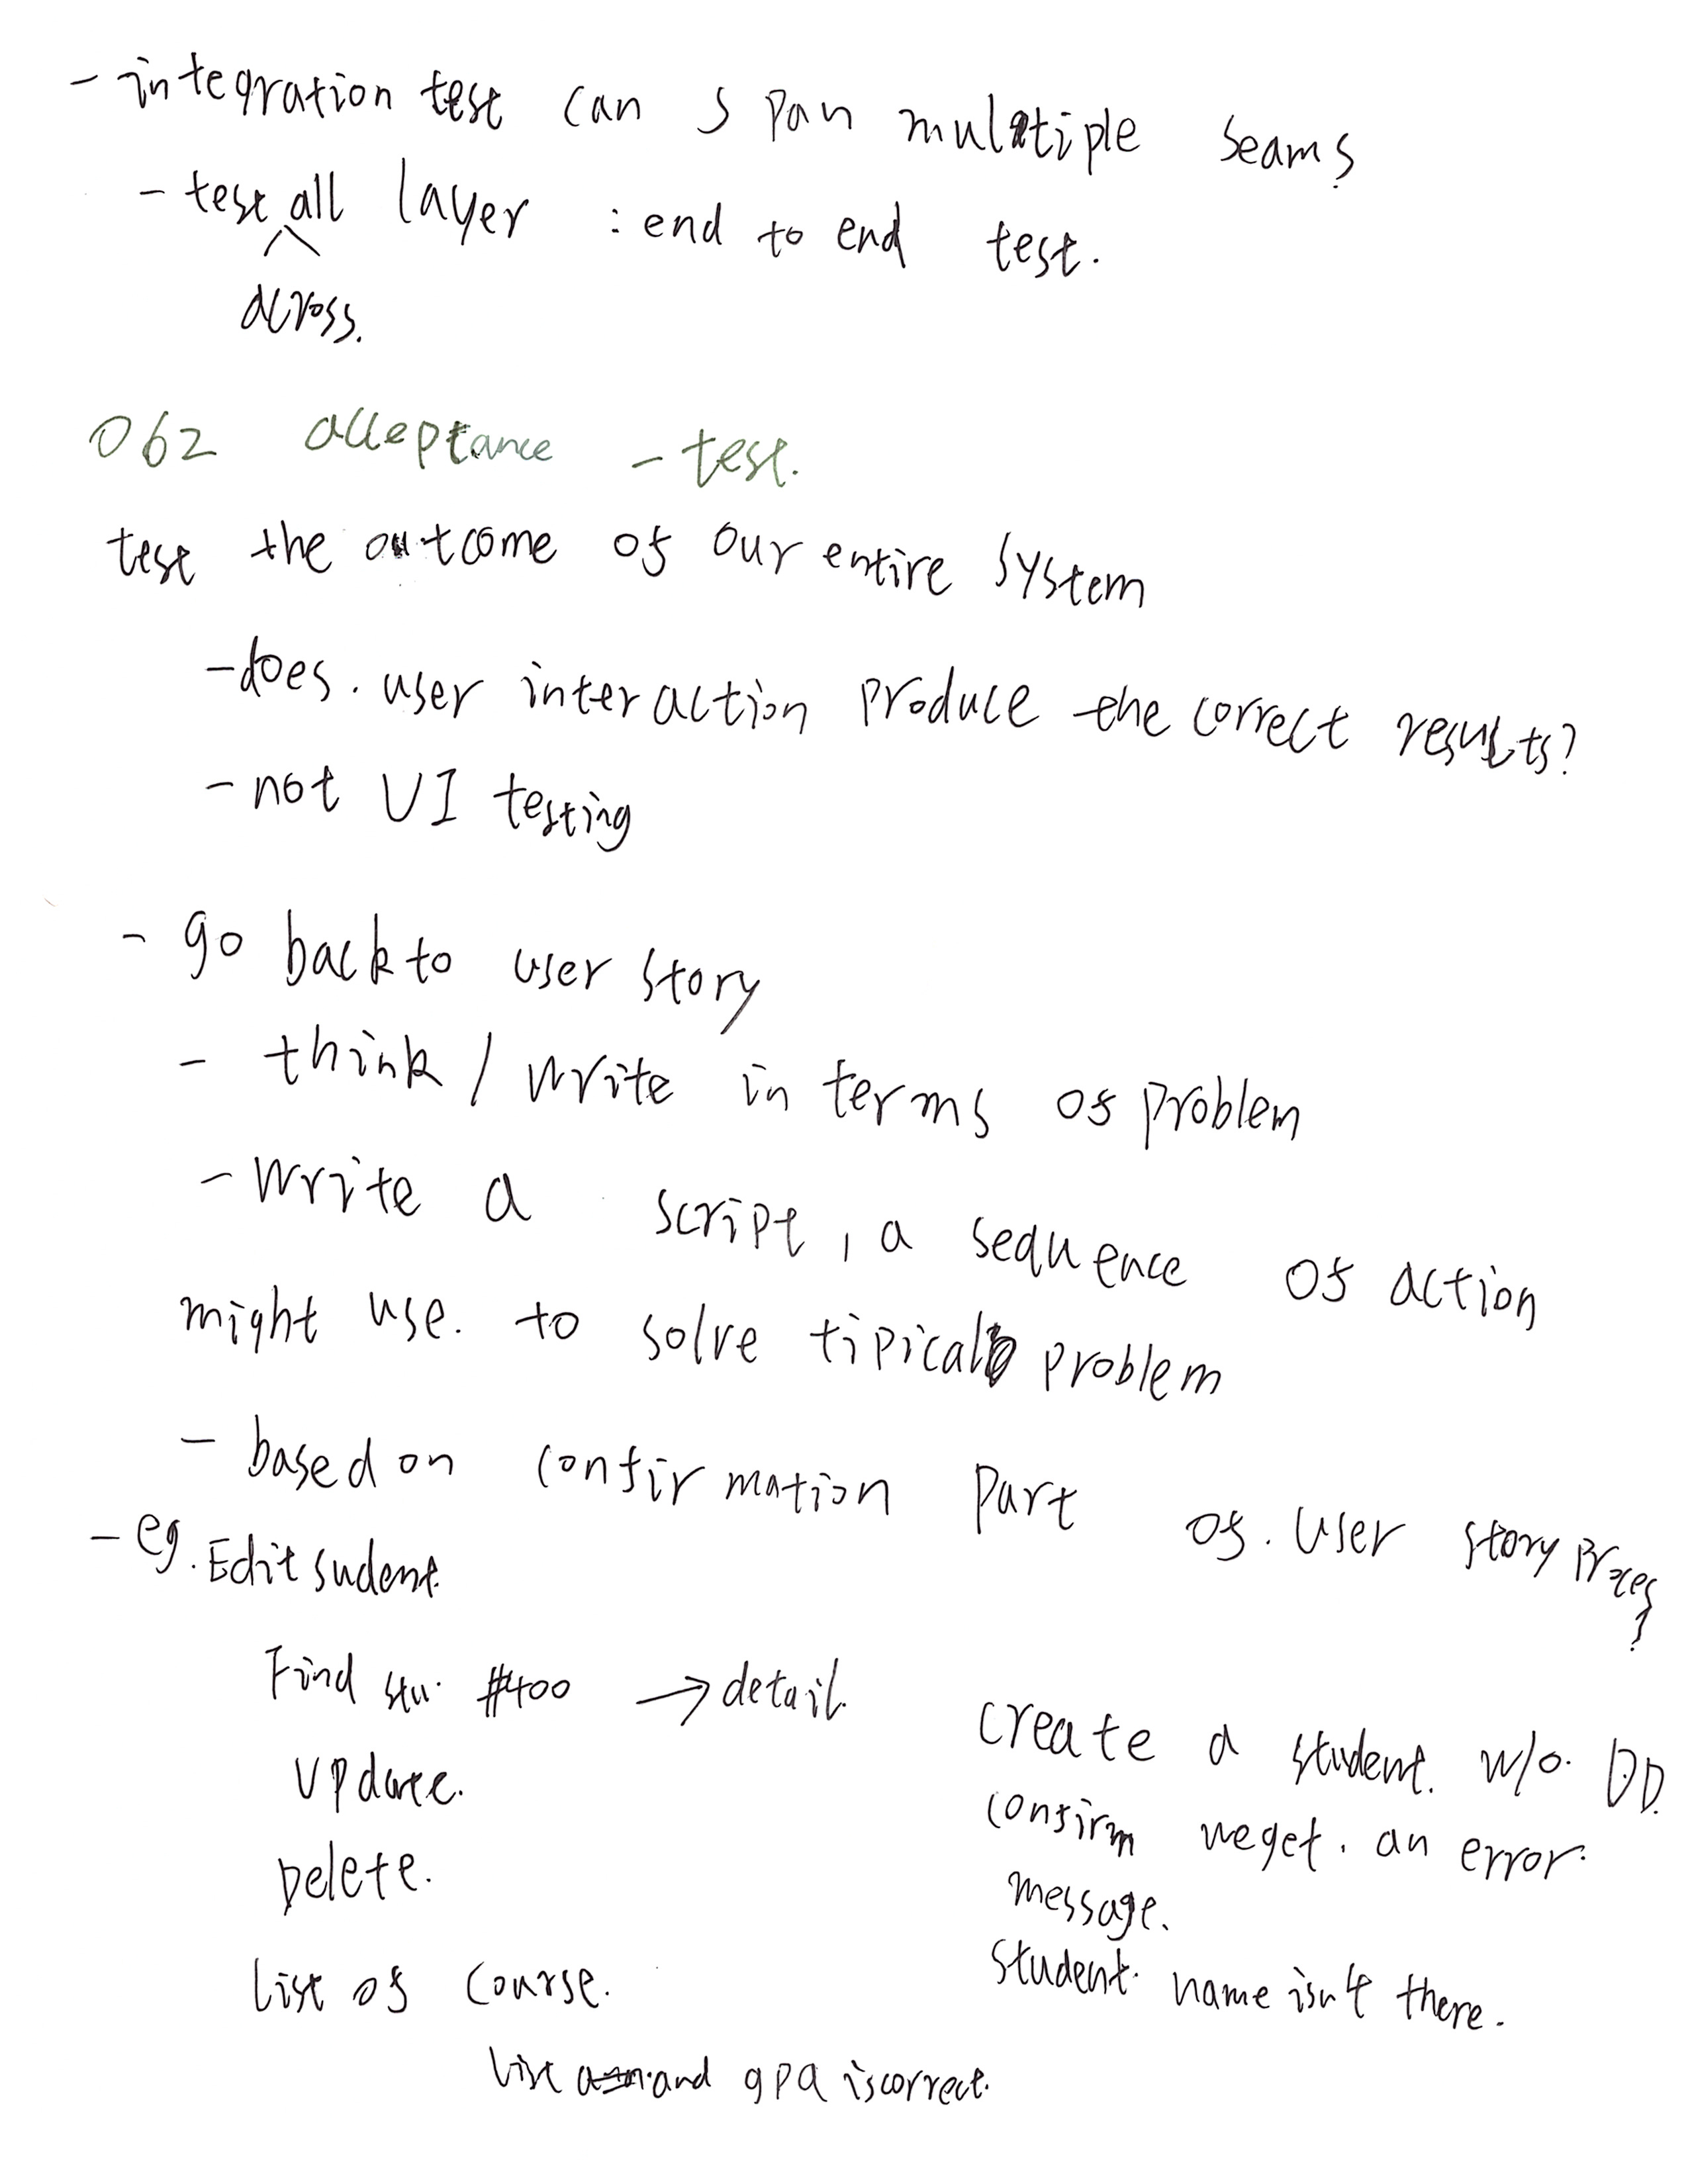 - integration test can span multiple seams.
- test all layer : end to end test.
across.
062 acceptance - test.
test the outcome of our entire system
- does. user interaction produce the correct results?
- not UI testing
- go back to user story
- think / write in terms of problem
- write a script, a sequence of action
might use. to solve tipical problem
- based on confirmation part of. user story proces?
- eg. Edit sudent.
Find stu. #400 → detail.
Update.
Delete.
List of course.
List and gpa is correct.
create a student. w/o.
confirm we get. an error.
message.
student. name isn't there.